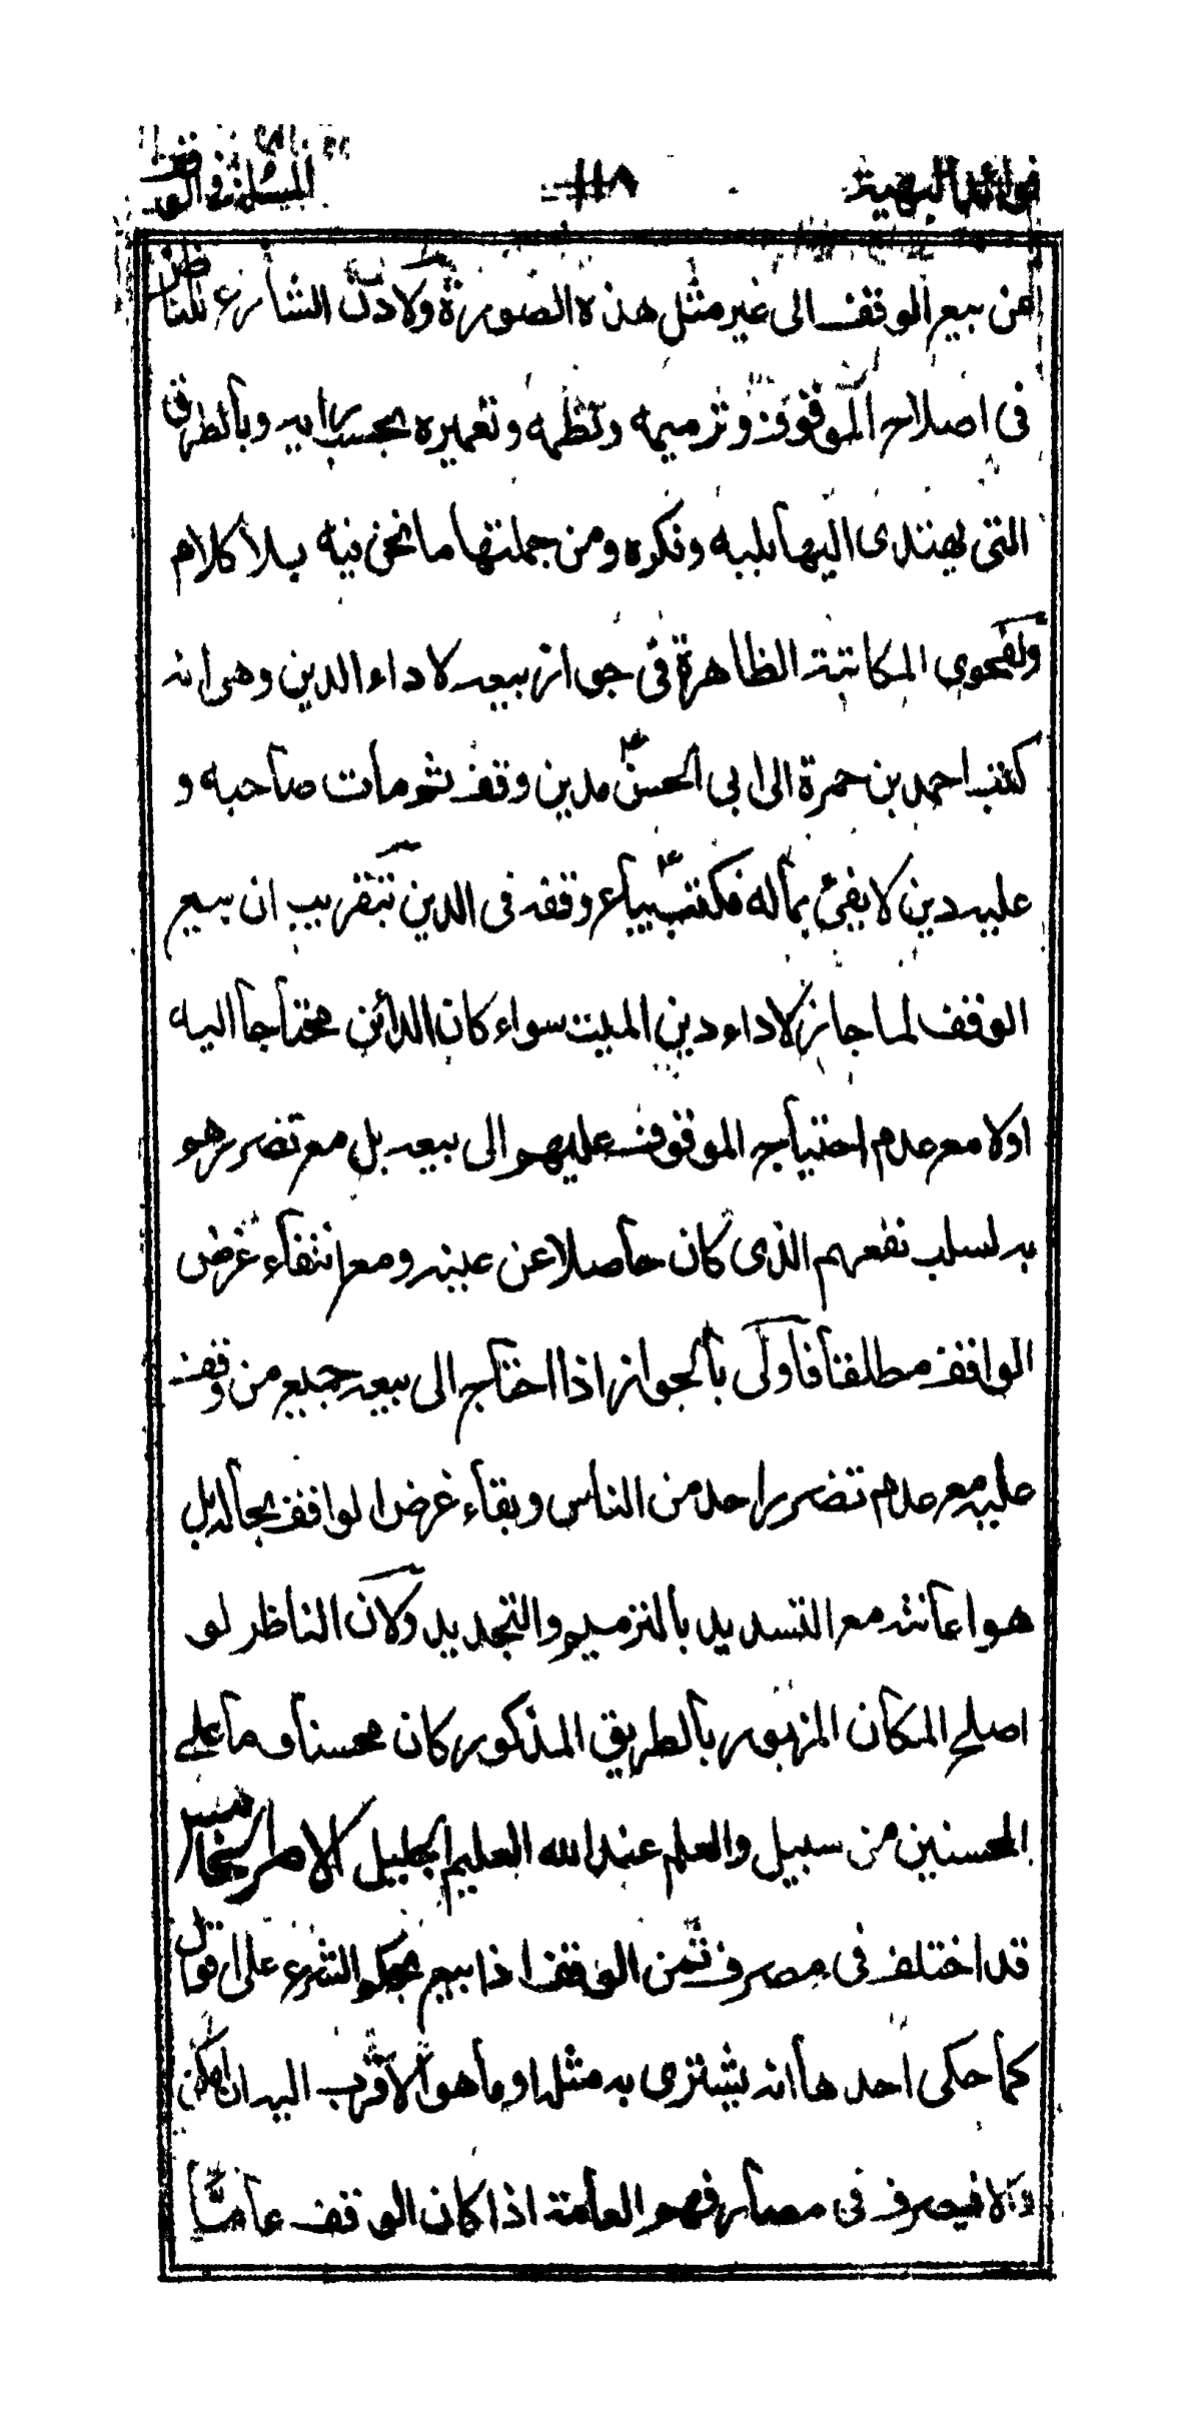 فوائد البهية ١١٨ المسئلة في الوقف
عن بيع الوقف الى غير مثل هذه الصورة ولاذن الشارع للناظر
فى اصلاح الموقوف وترميمه ونظمه وتعميره بحسب رايه وبالطرق
التى يهتدى اليها بلبه وفكره ومن جملتها ما نحن فيه بلا كلام
ولفحوى المكاتبة الظاهرة فى جواز بيعه لاداء الدين وهى انه
كتب احمد بن حمزة الى ابى الحسن ع مدين وقف ثم مات صاحبه و
عليه دين لا يفئ بماله فكتب ع يباع وقفه فى الدين بتقريب ان بيع
الوقف لما جاز لاداء دين الميت سواء كان الدائن محتاجا اليه
اولا مع عدم احتياج الموقوف عليهم الى بيعه بل مع تضررهم
به لسلب نفعهم الذى كان حاصلا عن عينه ومع انتفاء غرض
الواقف مطلقا فاولى بالجواز اذا احتاج الى بيعه جميع من وقف
عليه مع عدم تضرر احد من الناس وبقاء غرض الواقف بحاله بل
هو اعانته مع التسديد بالترميم والتجديد ولان الناظر لو
اصلح المكان المزبور بالطريق المذكور كان محسنا وما على
المحسنين من سبيل والعلم عند الله العليم الجليل الامر الخامس
قد اختلف فى مصرف ثمن الوقف اذا بيع بحكم الشرع على اقوال
كما حكى احدها انه يشترى به مثله او ما هو الاقرب اليه ان امكن
والا فيصرف فى مصارفهم العامة اذا كان الوقف عاما